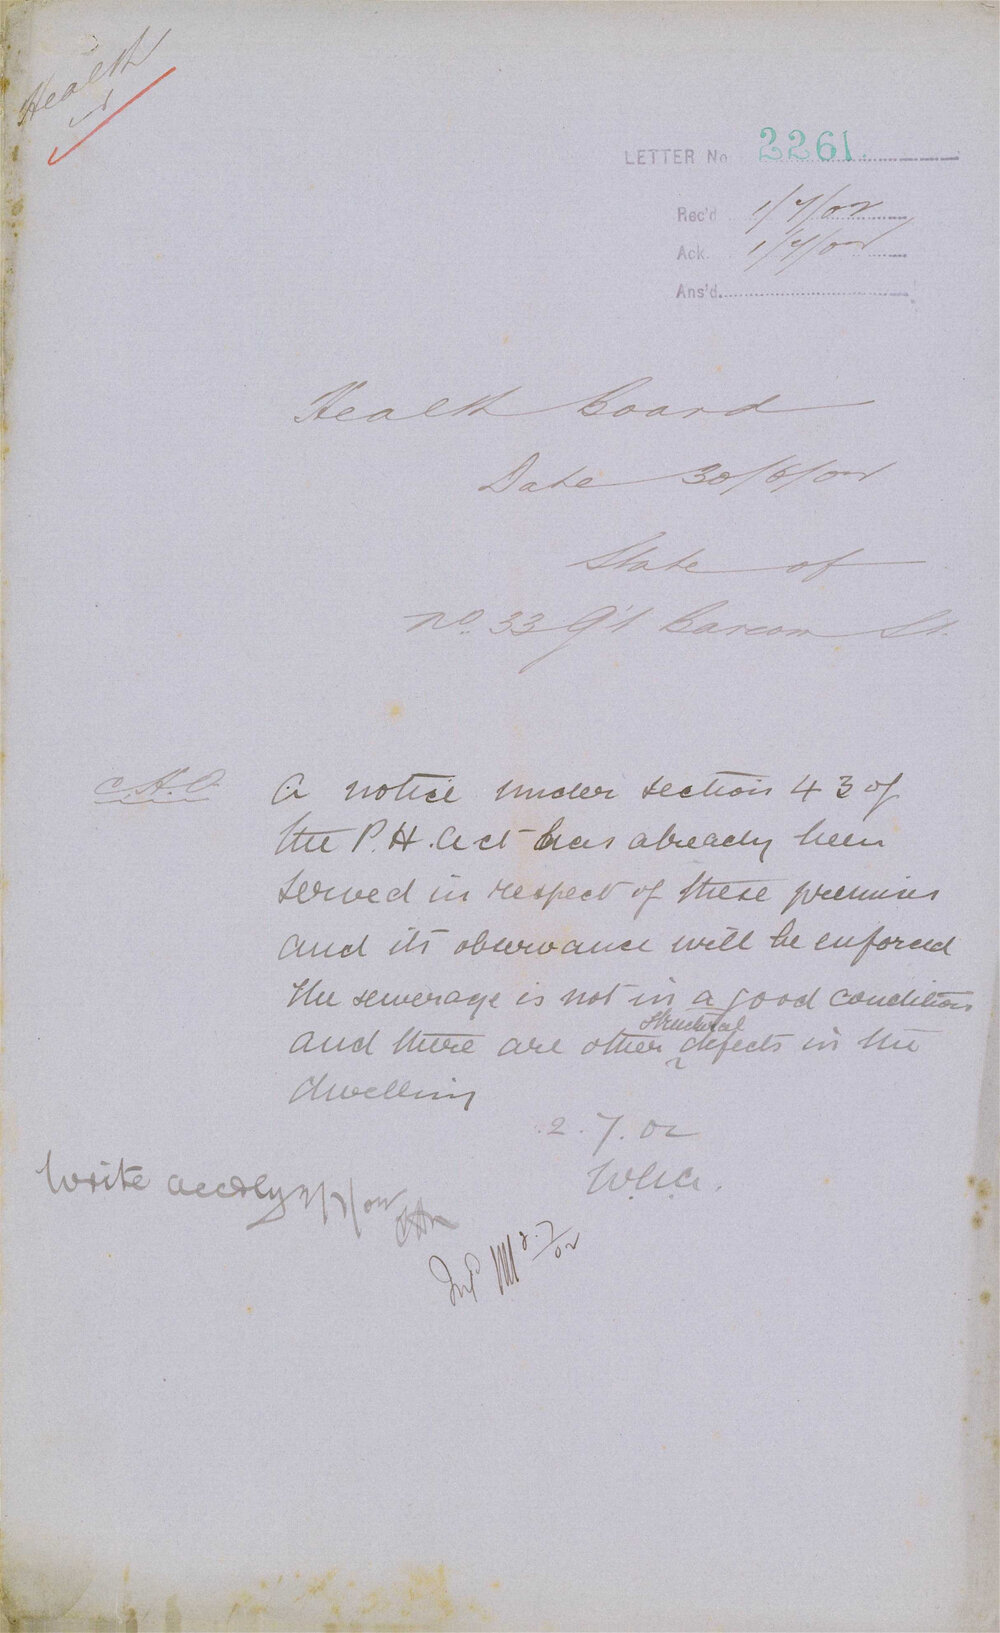 Health
LETTER No 2261.
Rec'd 1/7/02
Ack. 1/7/02
Ans'd.
Health Board
Date 30/6/02
State of
No. 33 Gt Barcom St.
C.H.O.
A notice under section 43 of
the P.H. Act has already been
served in respect of these premises
and its observance will be enforced
the sewerage is not in a good condition
and there are other structural defects in the
dwelling
2.7.02
Write accdly 2/7/02
2.7/02